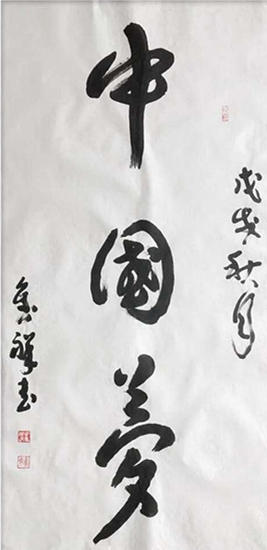 戊戌秋月
中國夢
祥書